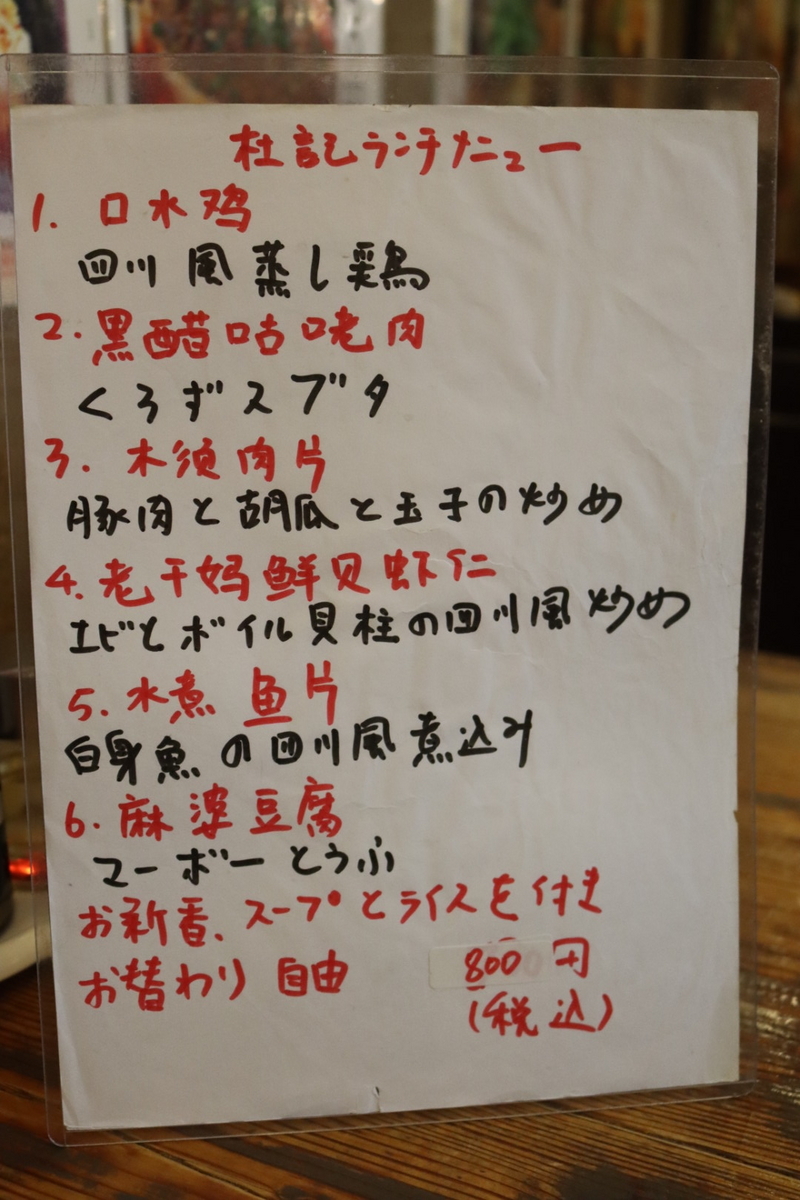 杜記ランチメニュー
1. 口水鸡
四川風蒸し鶏
2. 黒醋咕咾肉
くろずスブタ
3. 木須肉片
豚肉と胡瓜と玉子の炒め
4. 老干妈鲜贝虾仁
エビとボイル貝柱の四川風炒め
5. 水煮鱼片
白身魚の四川風煮込み
6. 麻婆豆腐
マーボーとうふ
お新香、スープとライスを付き
お替わり自由 800円
(税込)